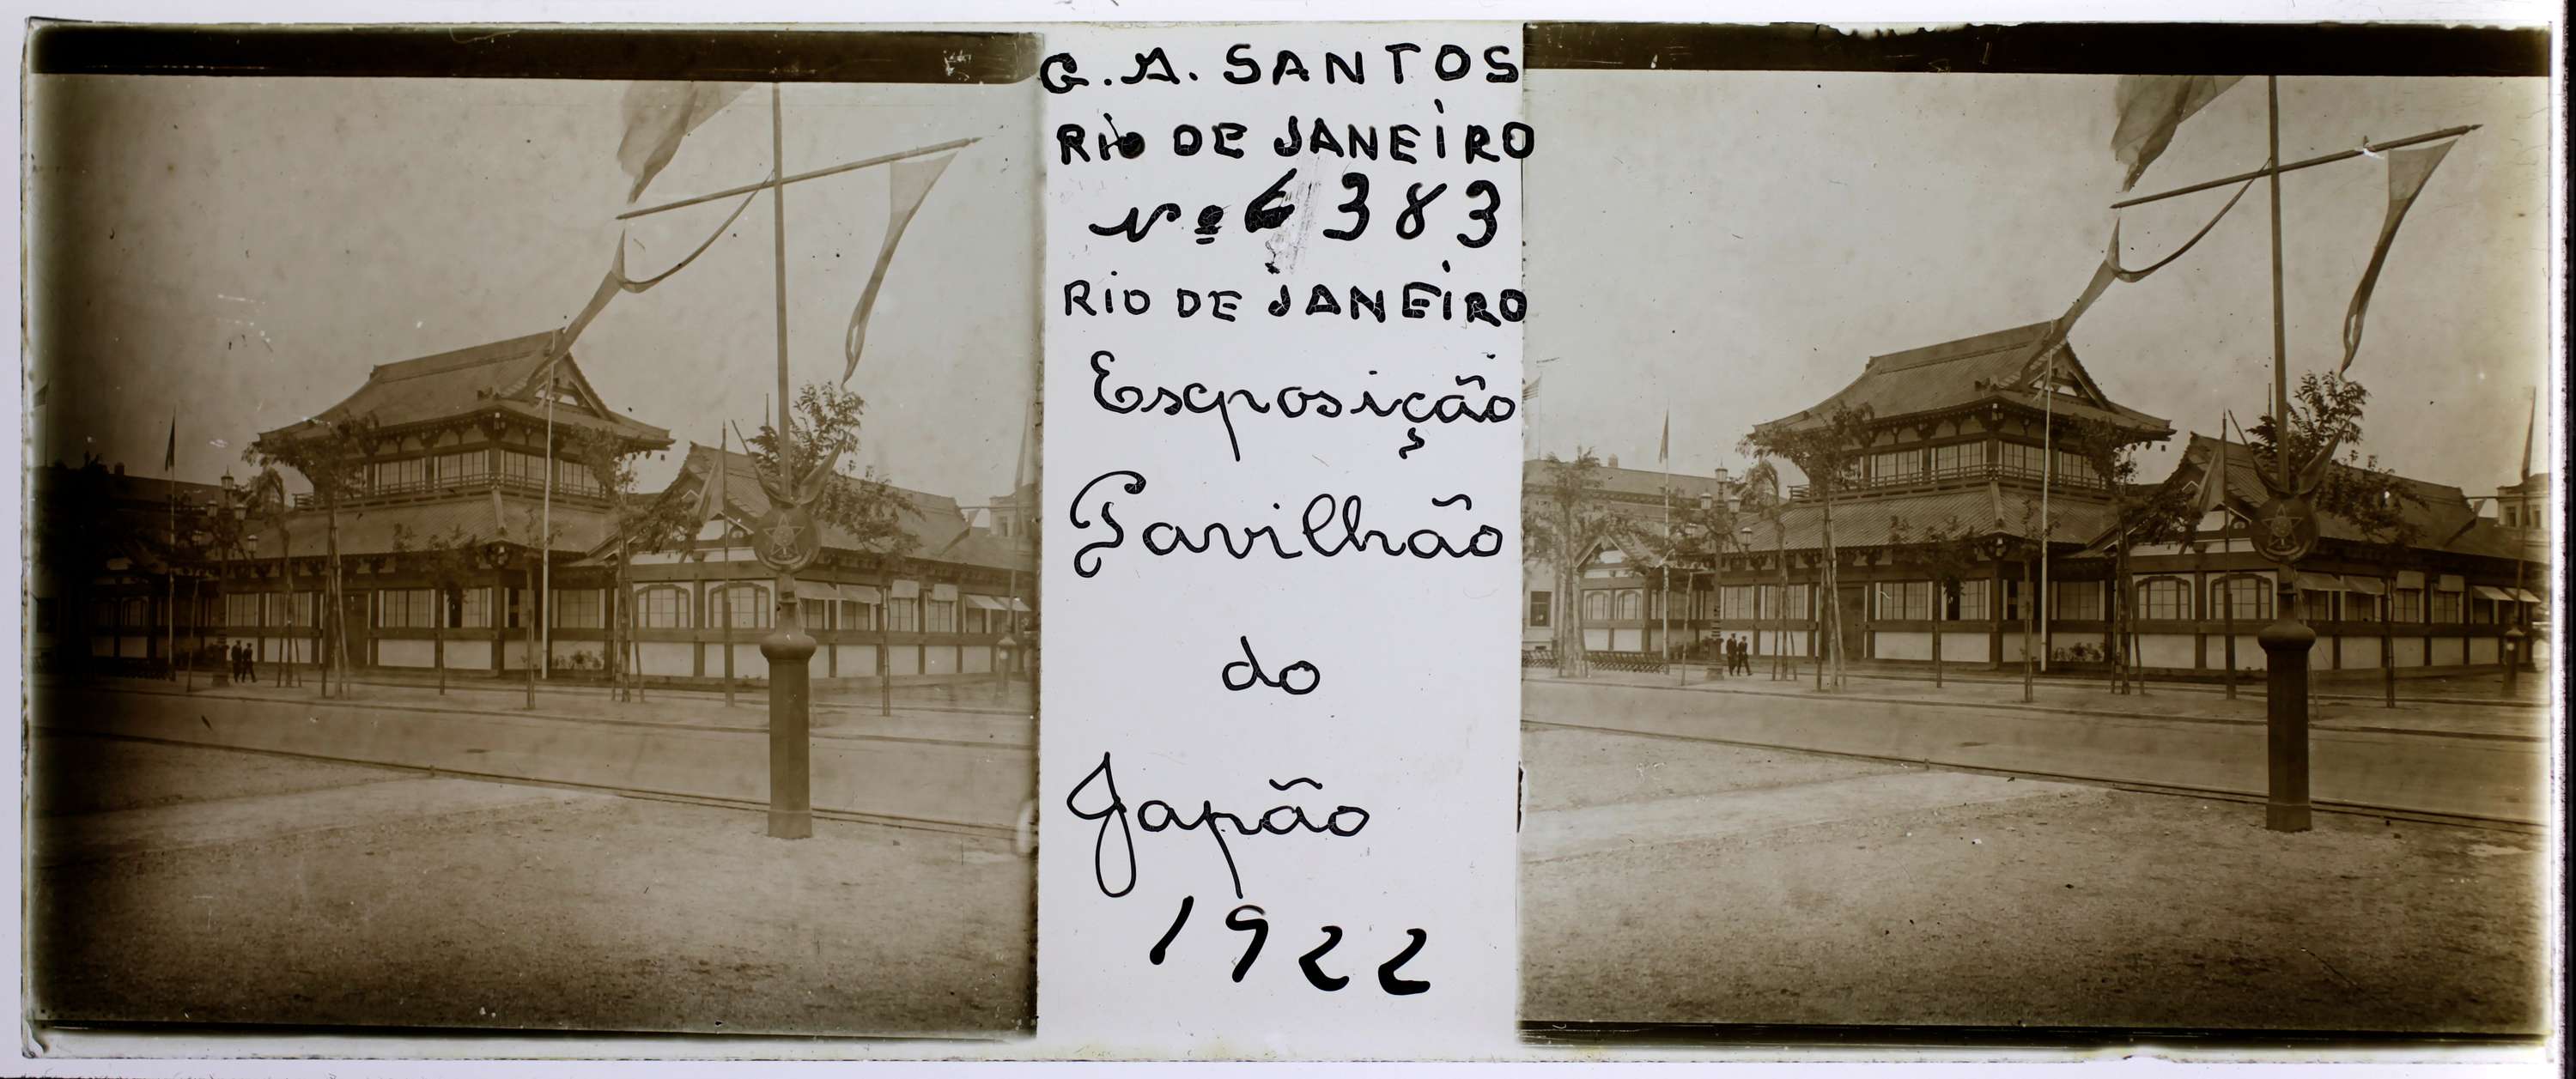 G. A. SANTOS
RIO DE JANEIRO
Nº 6383
RIO DE JANEIRO
Exposição
Pavilhão
do
Japão
1922